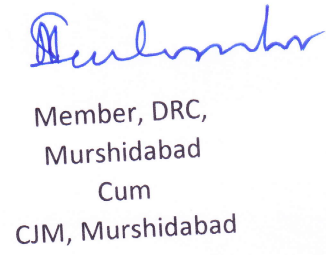 Member, DRC,
Murshidabad
Cum
CJM, Murshidabad